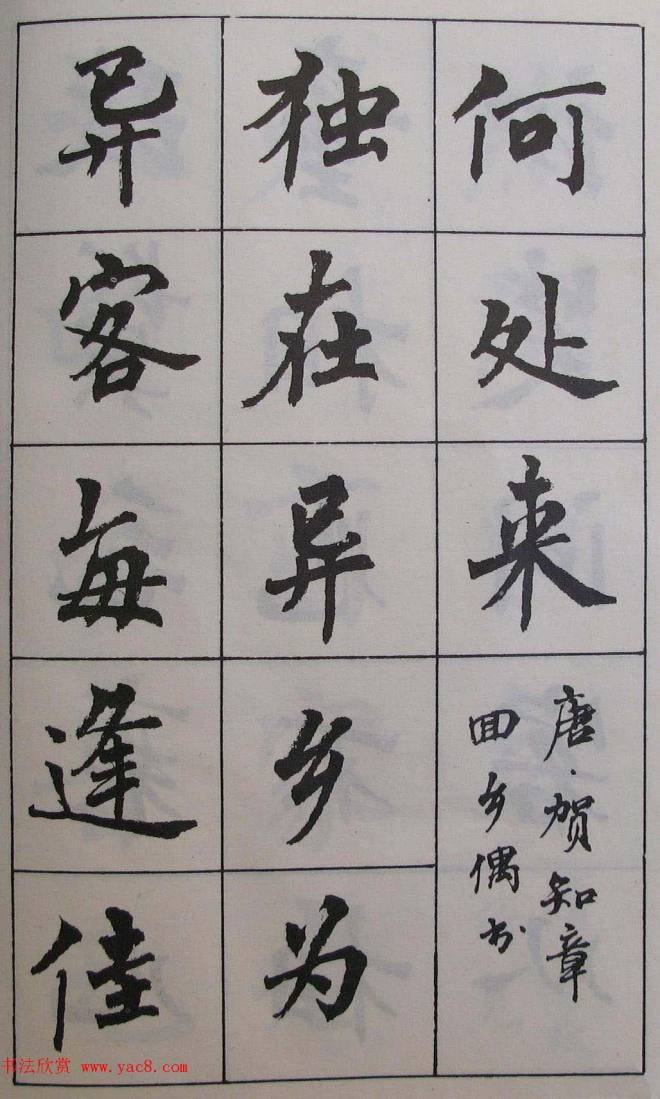 何处来
唐·贺知章
回乡偶书
独在异乡为
异客每逢佳
书法欣赏 www.yac8.com